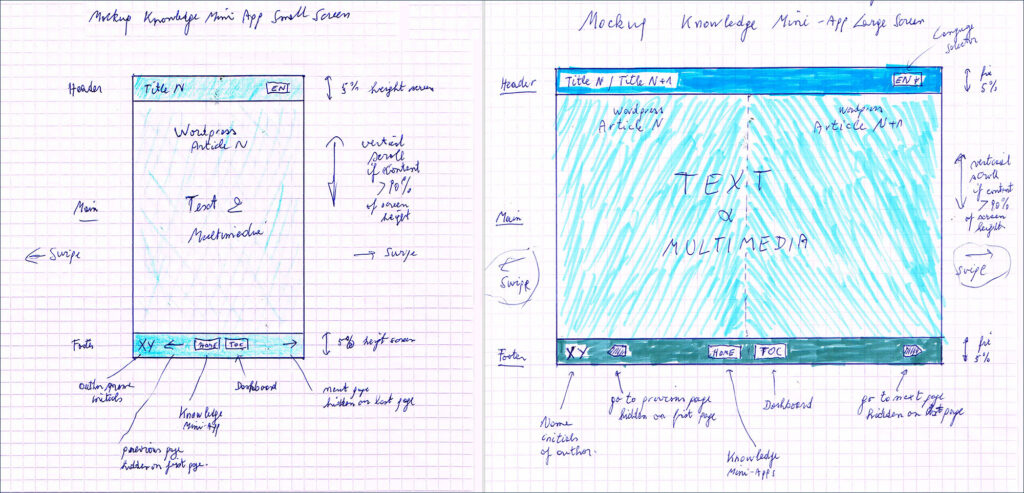 Mockup Knowledge Mini App Small Screen
Header
Title N
EN
5% height screen
Wordpress
Article N
vertical
scroll
if content
> 90%
of screen
height
Main
Text &
Multimedia
← Swipe
→ Swipe
Footer
XY
←
HOME
TOC
→
5% height screen
initials
Knowledge
Mini-App
Dashboard
next page
hidden on last page
previous page
hidden on first page.
Mockup Knowledge Mini-App Large Screen
Language
selector
Header
Title N | Title N+1
EN
fix
5%
Wordpress
Article N
Wordpress
Article N+1
vertical
scroll
if content
> 90%
of screen
height
Main
TEXT
&
MULTIMEDIA
←
Swipe
→
Swipe
Footer
XY
HOME
TOC
fix
5%
Name
initials
of author.
go to previous page
hidden on first page
Knowledge
Mini-Apps
Dashboard
go to next page
hidden on last page